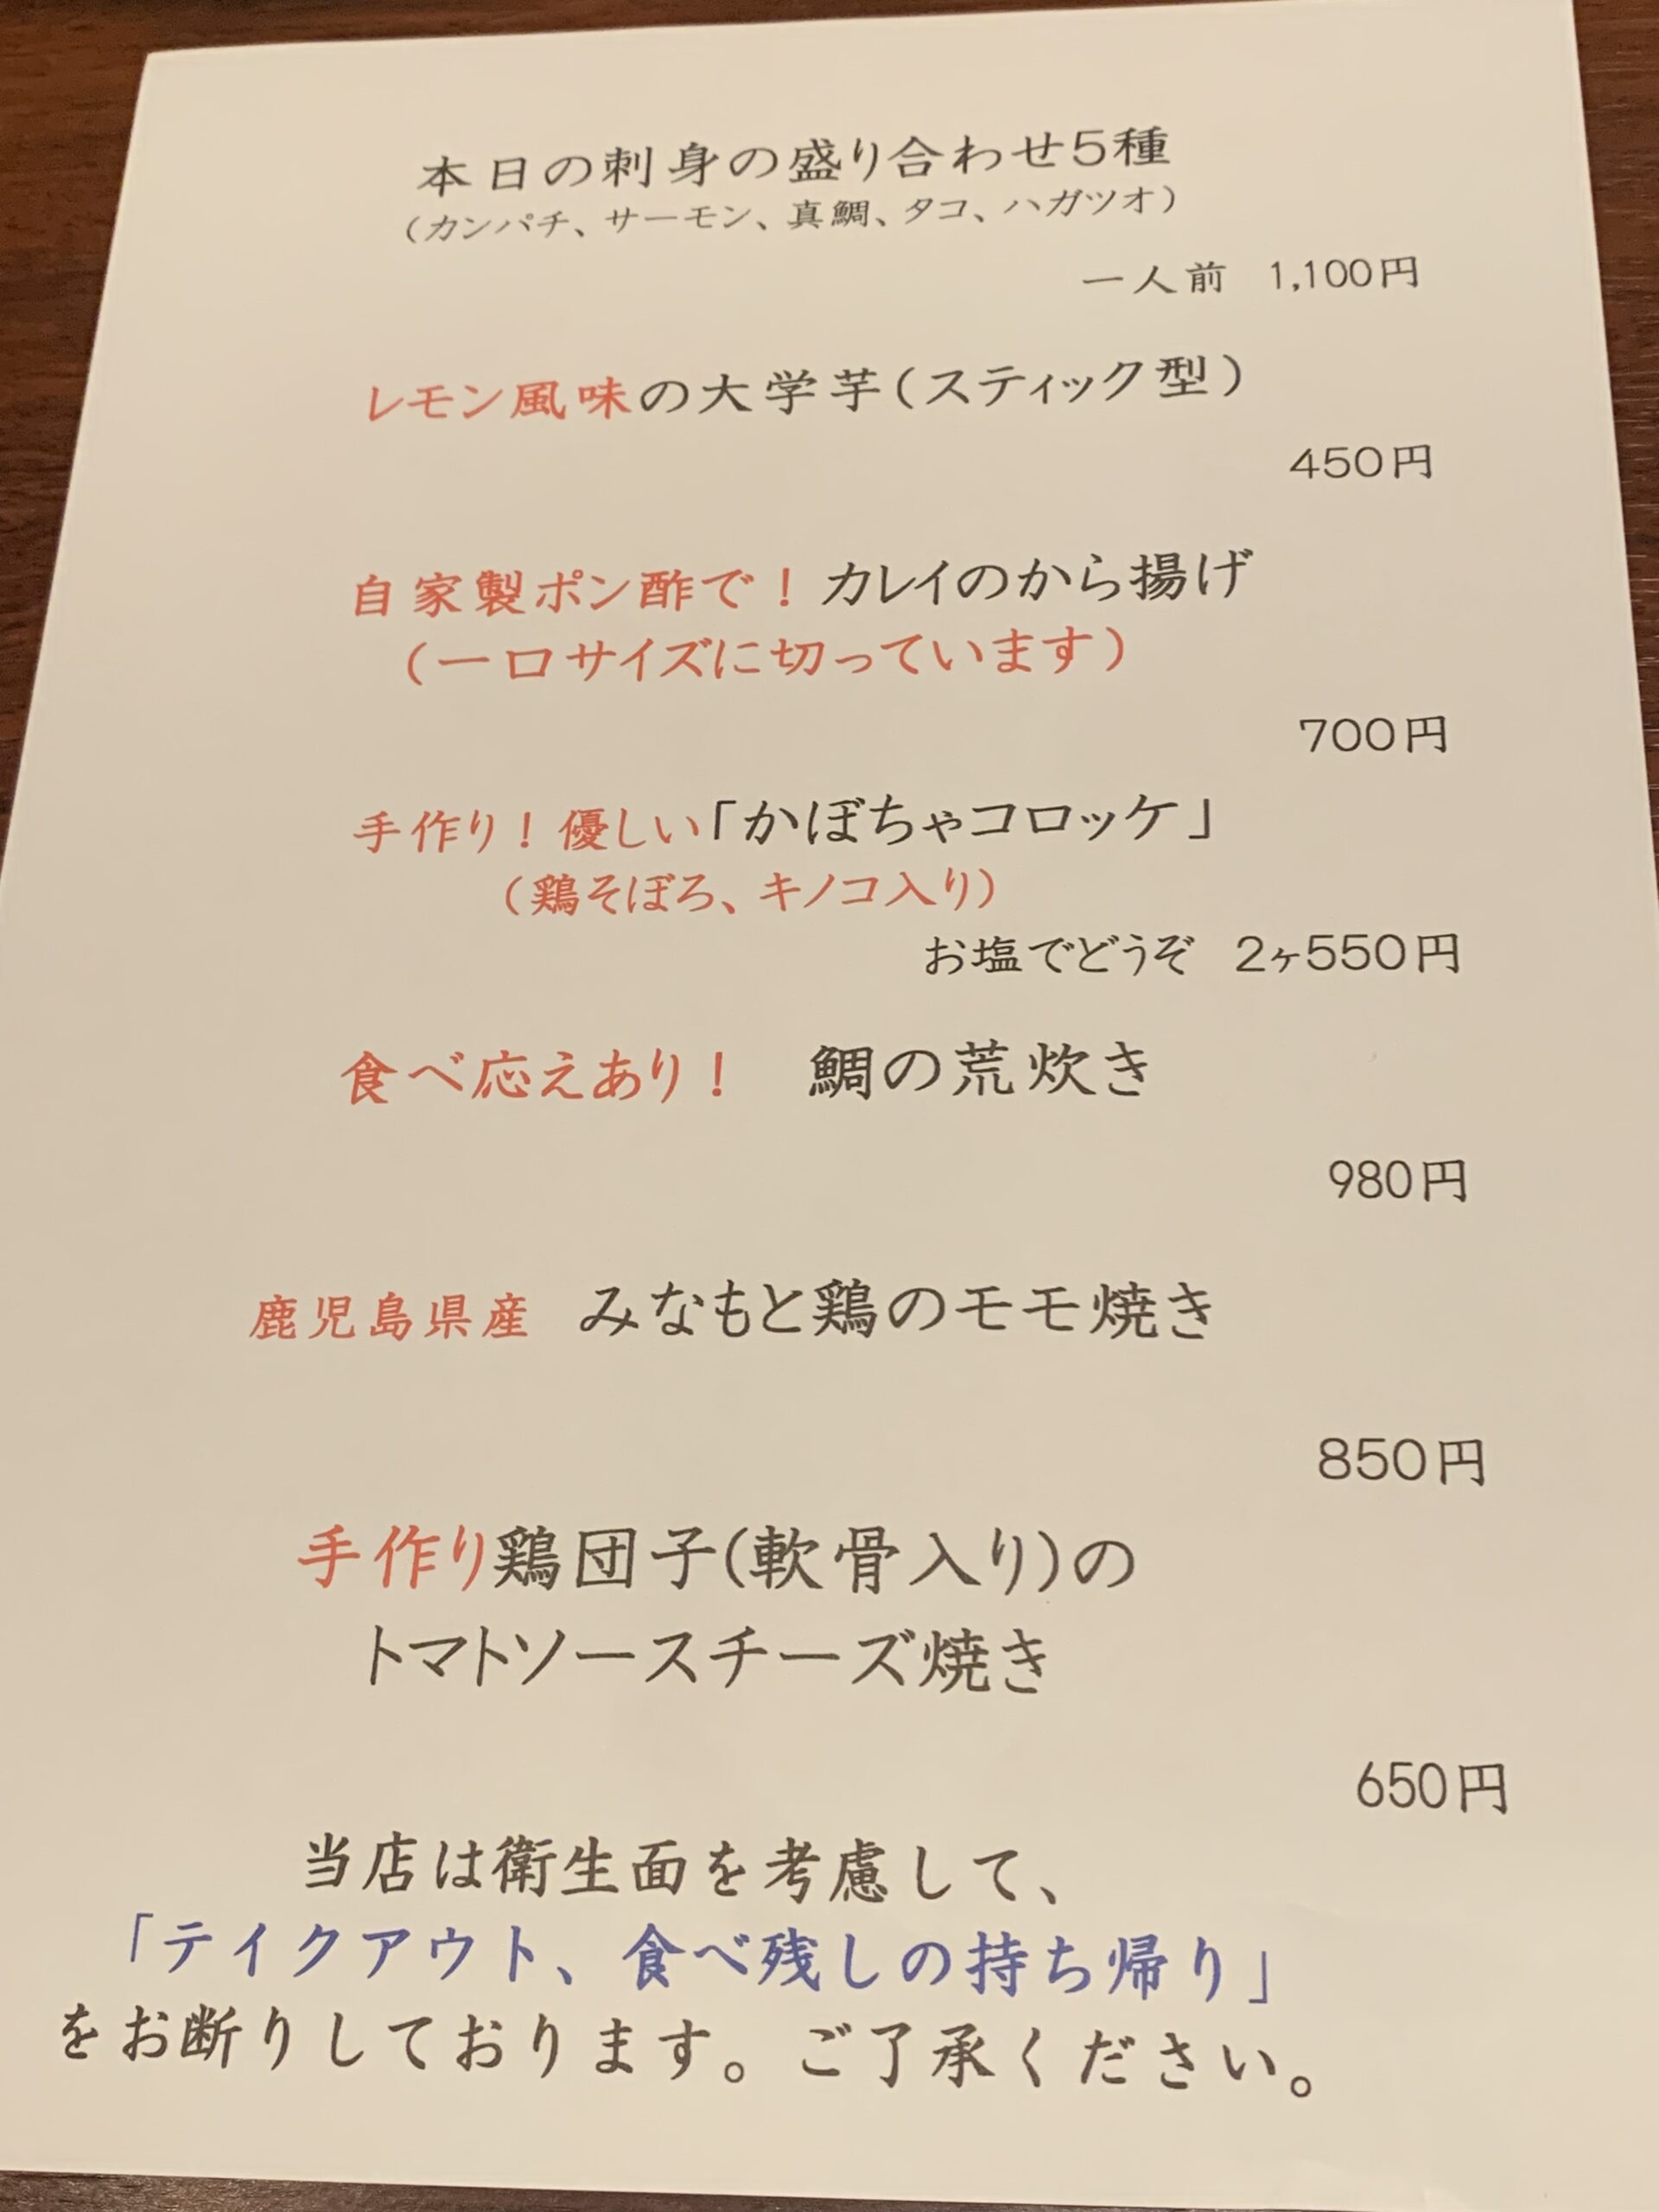 本日の刺身の盛り合わせ5種
（カンパチ、サーモン、真鯛、タコ、ハガツオ）
一人前 1,100円
レモン風味の大学芋（スティック型）
450円
自家製ポン酢で！カレイのから揚げ
（一口サイズに切っています）
700円
手作り！優しい「かぼちゃコロッケ」
（鶏そぼろ、キノコ入り）
お塩でどうぞ 2ヶ550円
食べ応えあり！ 鯛の荒炊き
980円
鹿児島県産 みなもと鶏のモモ焼き
850円
手作り鶏団子(軟骨入り)の
トマトソースチーズ焼き
650円
当店は衛生面を考慮して、
「テイクアウト、食べ残しの持ち帰り」
をお断りしております。ご了承ください。